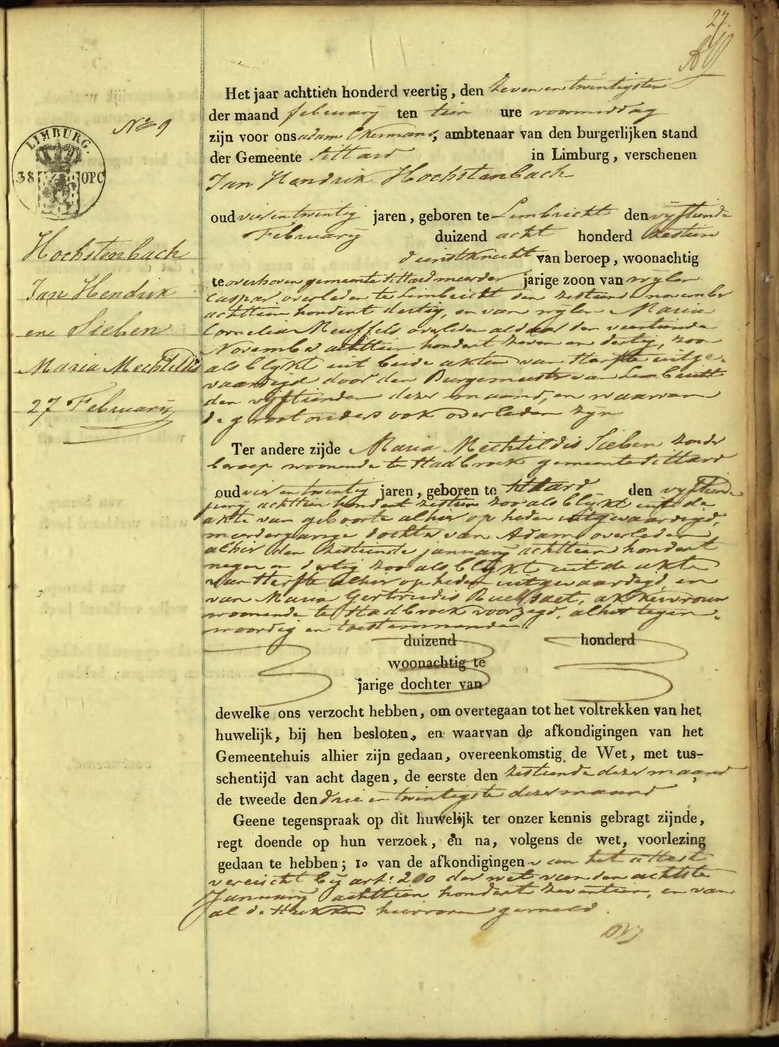 27.
No 9
LIMBURG.
38 OPC
Hochstenbach
Jan Hendrik
en Sieben
Maria Mechtildis
27 February
Het jaar achttien honderd veertig, den zevenentwintigsten
der maand february ten tien ure voormiddag
zijn voor ons adam, ambtenaar van den burgerlijken stand
der Gemeente Sittard in Limburg, verschenen
Jan Hendrik Hochstenbach
oud vierentwintig jaren, geboren te Limbricht den vyftiende
February duizend acht honderd zestien
dienstknecht van beroep, woonachtig
te overhoven gemeente Sittard meerder jarige zoon van wylen
Caspar overleden te Limbricht den zestiend november
achttien hondert dertig, en van wylen Maria
Cornelia overleden aldaar den veertiende
November achttien hondert zeven en dertig, zoo
als blykt uit beide akten van sterfte uitge-
vaardigd door den Burgemeester van Limbricht
den vyftienden dezer maand, en waarvan
de grootouders ook overleden zyn
Ter andere zijde Maria Mechtildis Sieben zonder
beroep woonende te Stadbroek gemeente Sittard
oud vierentwintig jaren, geboren te Sittard den vyftiende
juny achttien hondert zestien zoo als blykt uit de
akte van geboorte alhier op heden uitgevaardigd,
meerderjarige dochter van Adam overleden
alhier den zestiende january achttien hondert
negen en dertig zoo als blykt uit de akte
van sterfte alhier op heden uitgevaardigd, en
van Maria Gertrudis, akkervrouw
woonende te Stadbroek voorzegd, alhier tegen-
woordig en toestemmende
duizend honderd
woonachtig te
jarige dochter van
dewelke ons verzocht hebben, om overtegaan tot het voltrekken van het
huwelijk, bij hen besloten, en waarvan de afkondigingen van het
Gemeentehuis alhier zijn gedaan, overeenkomstig de Wet, met tus-
schentijd van acht dagen, de eerste den zestiende dezer maand
de tweede den drie en twintigste dezer maand
Geene tegenspraak op dit huwelijk ter onzer kennis gebragt zijnde,
regt doende op hun verzoek, en na, volgens de wet, voorlezing
gedaan te hebben; 1o van de afkondigingen van het attest
vereischt by art: 200 der wet van den achtste
January achttien hondert zeventien, en van
al de stukken hiervoren gemeld.